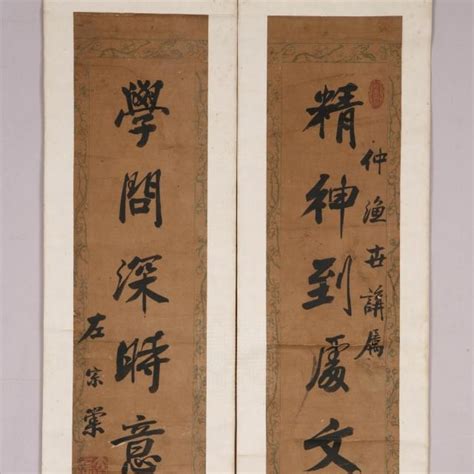 仲漁世講屬
精神到處文
學問深時意
左宗棠